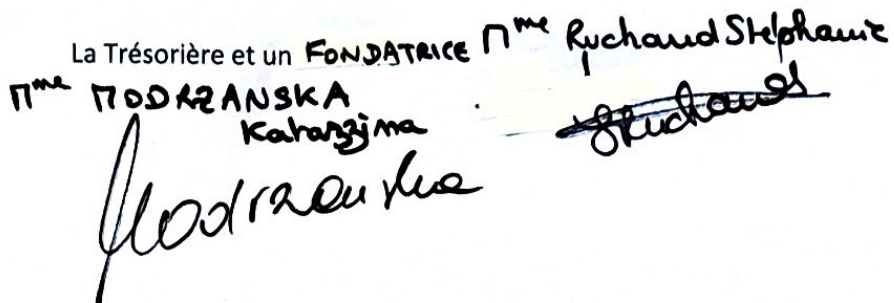 La Trésorière et un FONDATRICE Mme Ruchaud Stéphanie
Mme MODRZANSKA
Katarzyna
SRuchaud
Modrzanska